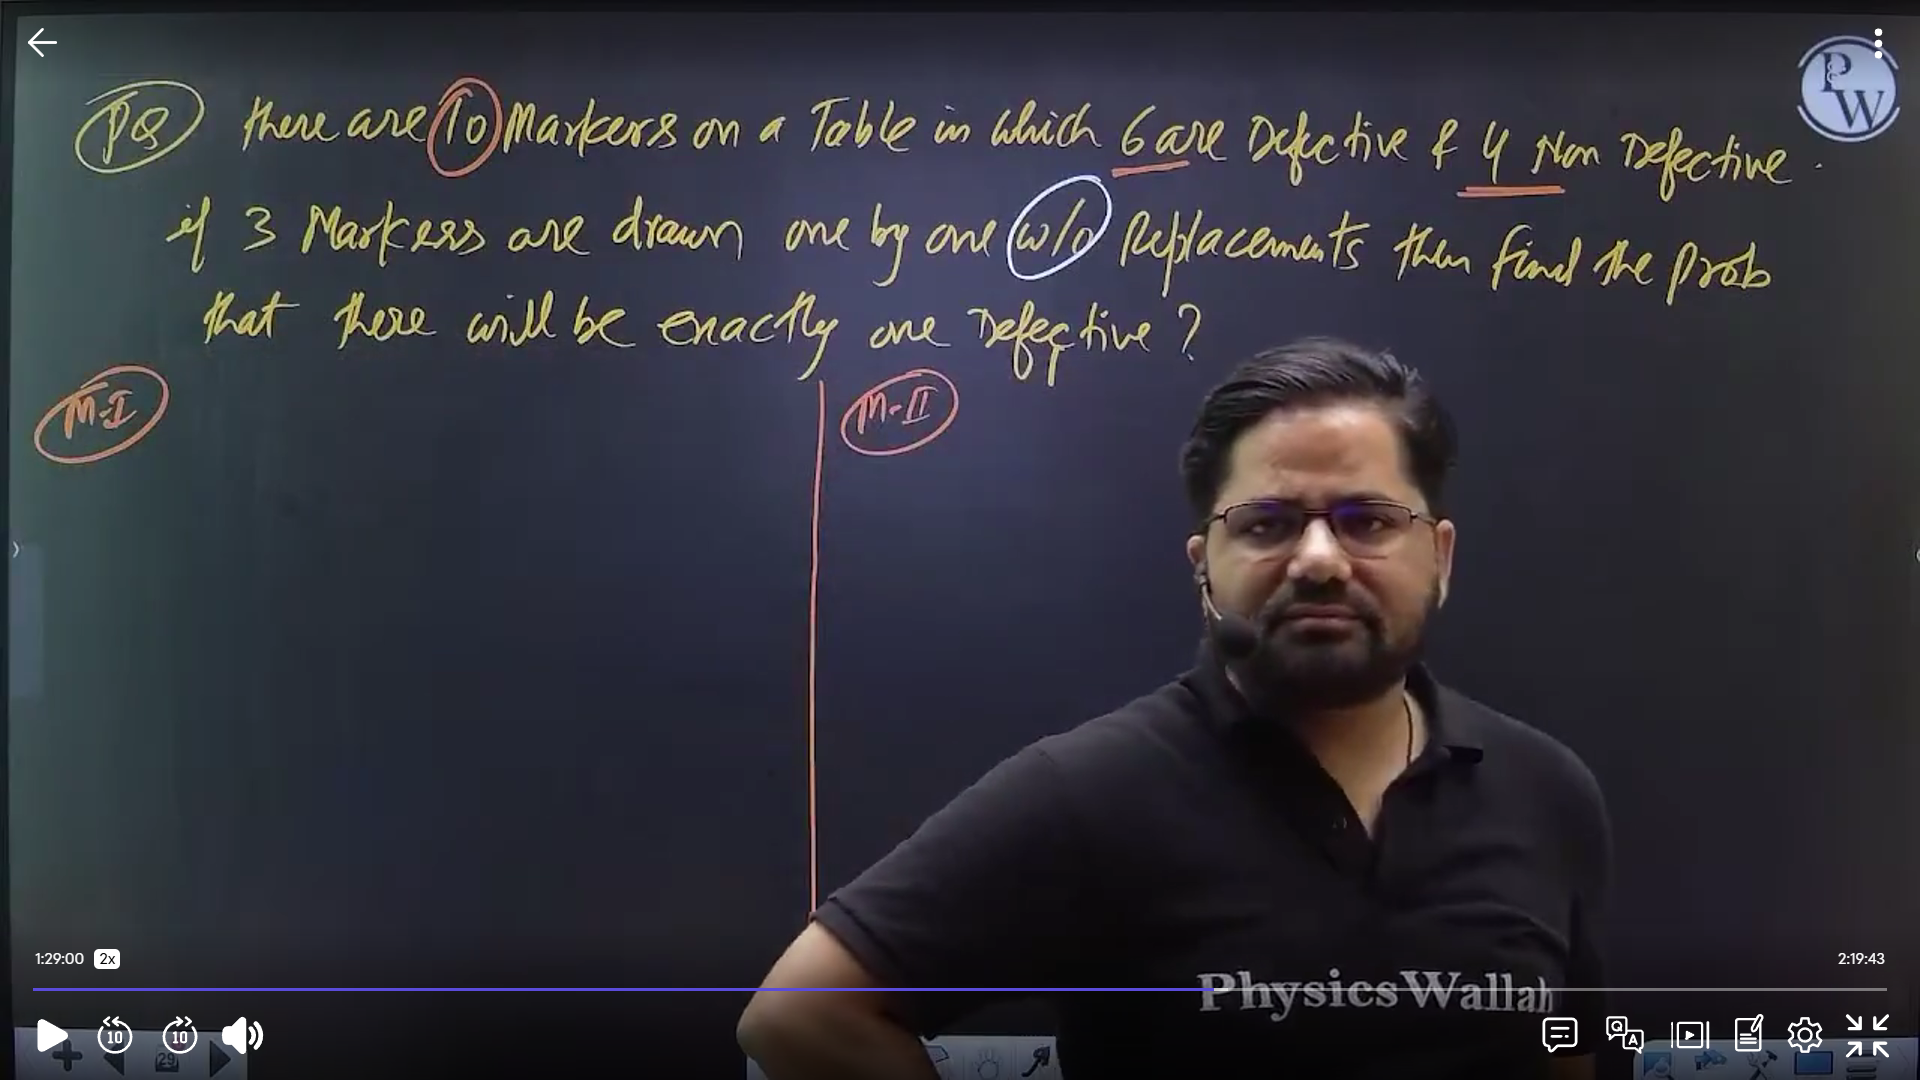 PQ There are 10 Markers on a Table in which 6 are Defective & 4 Non Defective.
if 3 Markers are drawn one by one w/o Replacements then find the Prob
that there will be exactly one Defective?
M-I
M-II
PW
1:29:00 2x
2:19:43
PhysicsWallah
10 10
29